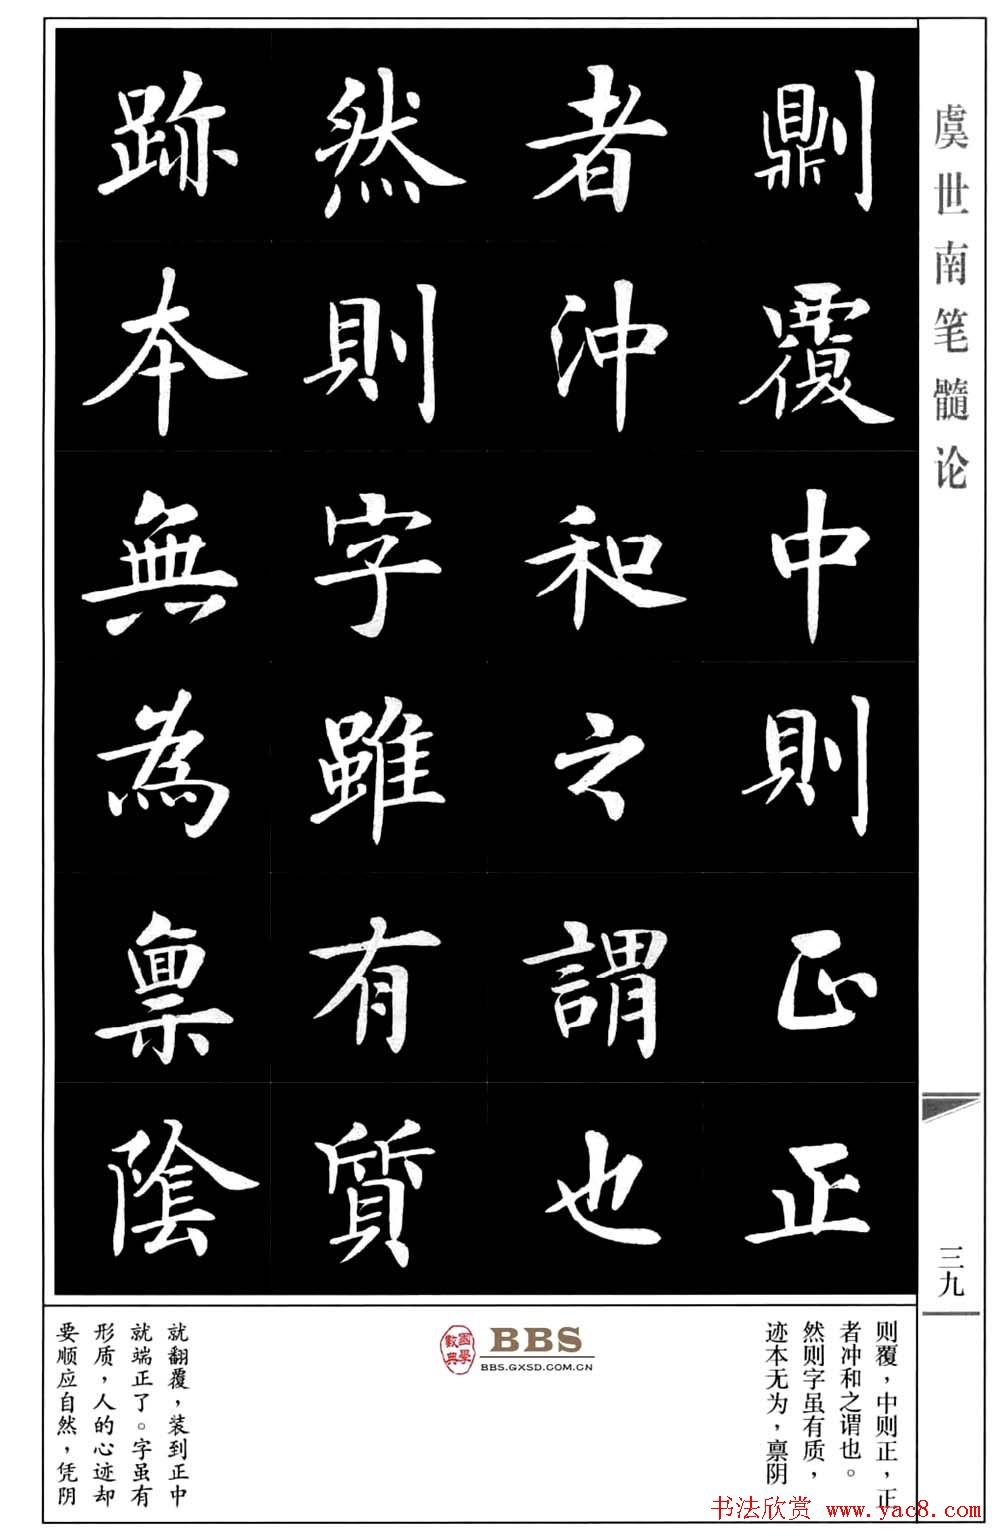 虞世南笔髓论
三九
𠟭覆中則正正
者沖和之謂也
然則字雖有質
跡本無為禀陰
则覆，中则正，正
者冲和之谓也。
然则字虽有质，
迹本无为，禀阴
國學數典
BBS
BBS.GXSD.COM.CN
就翻覆，装到正中
就端正了。字虽有
形质，人的心迹却
要顺应自然，凭阴
书法欣赏 www.yac8.com